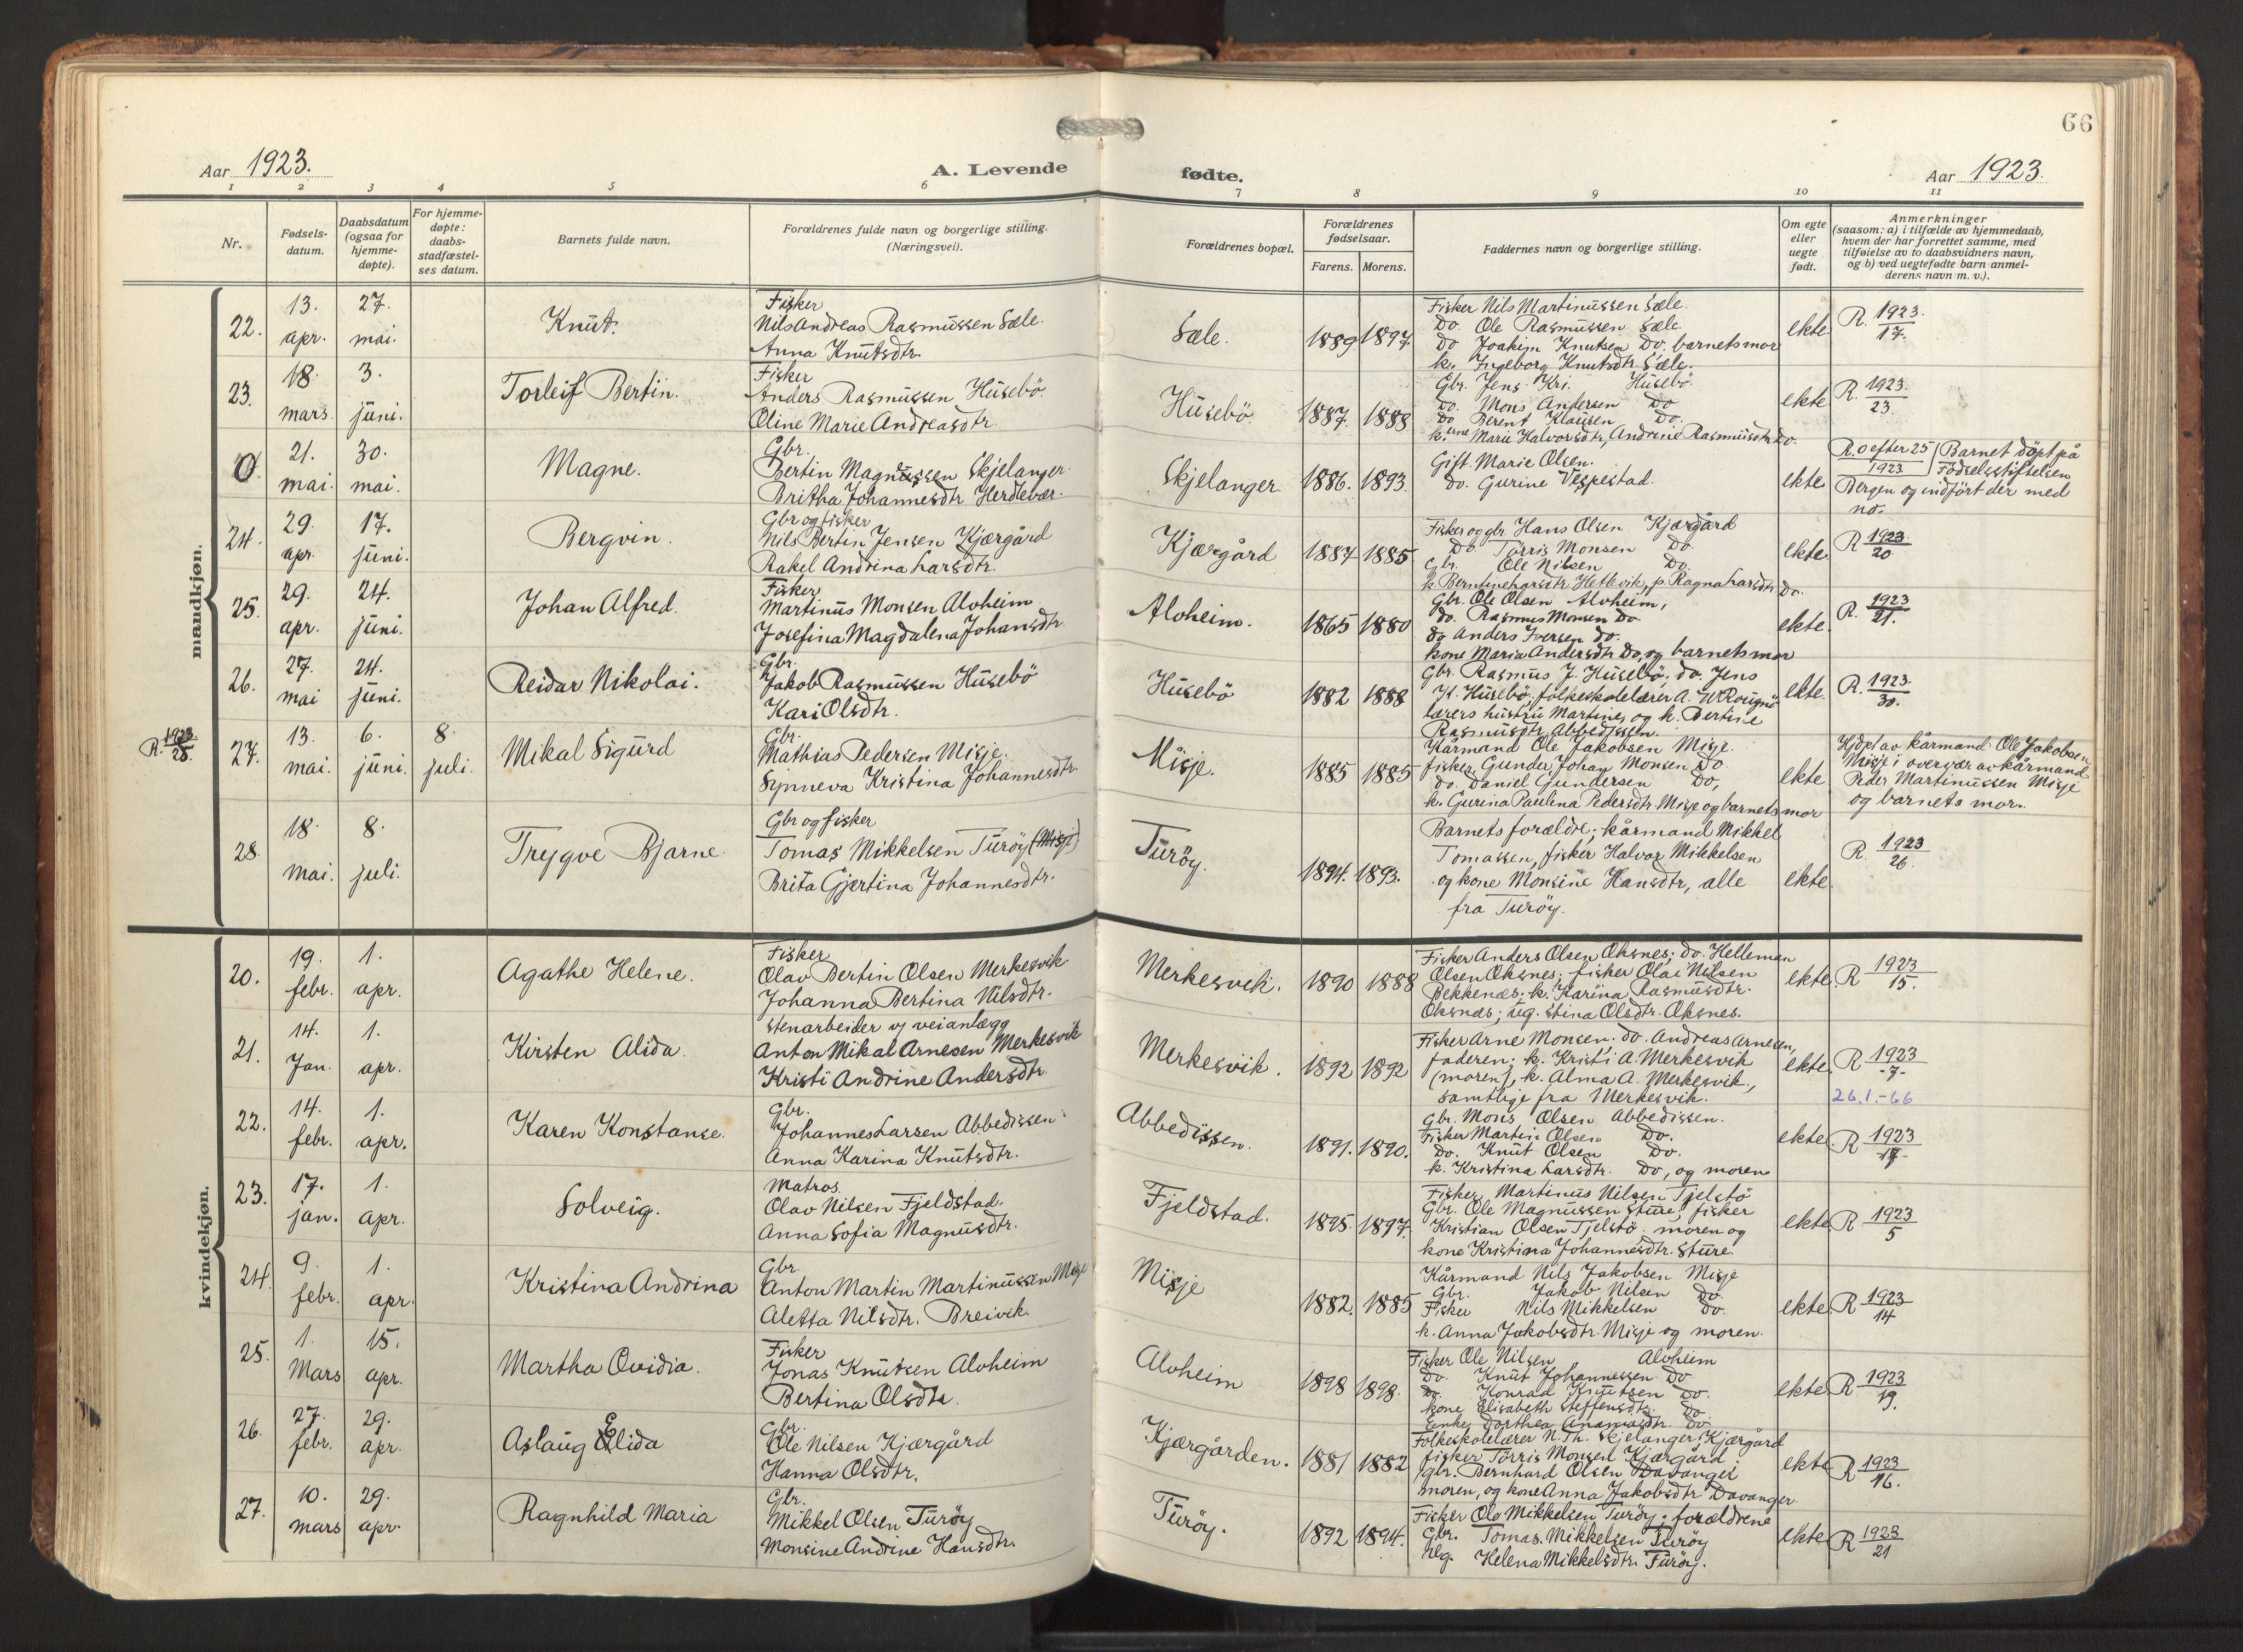 66
Aar 1923.
A. Levende fødte.
Aar 1923.
1 2 3 4 5 6 7 8 9 10 11
Nr.
Fødsels-
datum.
Daabsdatum
(ogsaa for
hjemme-
døpte).
For hjemme-
døpte:
daabs-
stadfæstel-
ses datum.
Barnets fulde navn.
Forældrenes fulde navn og borgerlige stilling.
(Næringsvei).
Forældrenes bopæl.
Forældrenes
fødselsaar.
Farens. Morens.
Faddernes navn og borgerlige stilling.
Om egte
eller
uegte
født.
Anmerkninger
(saasom: a) i tilfælde av hjemmedaab,
hvem der har forrettet samme, med
tilføielse av to daabsvidners navn,
og b) ved uegtefødte barn anmel-
derens navn m. v.).
mandkjøn.
22.
13.
apr.
27.
mai.
Knut.
Fisker
Nils Andreas Rasmussen Sæle.
Anna Knutsdtr.
Sæle.
1889 1897
Fisker Nils Martinussen Sæle.
Do. Ole Rasmussen Sæle.
Do Joakim Knutsen Do. barnets mor
k. Ingeborg Knutsdtr Sæle.
ekte
R. 1923.
17.
23.
18.
mars.
3.
juni.
Torleif Bertin.
Fisker
Anders Rasmussen Husebö.
Oline Marie Andreasdtr
Husebö
1887. 1888
Gbr. Jens Kri. Husebö
Do. Mons Andersen Do
Do Berent Klausen Do.
k.erne Marie Halvorsdtr, Andrine Rasmusdtr Do.
ekte
R. 1923.
23.
0
21.
mai.
30.
mai.
Magne.
Gbr.
Bertin Magnussen Skjelanger.
Britha Johannesdtr Herdlevær.
Skjelanger
1886. 1893.
Gift. Marie Olsen.
do. Gurine Vespestad.
ekte
R. 0 efter 25
1923
Barnet döpt på
Födselsstiftelsen
Bergen og indfört der med
no.
24.
29.
apr.
17.
juni.
Bergvin.
Gbr og fisker
Nils Bertin Jensen Kjærgård
Rakel Andrina Larsdtr.
Kjærgård
1887 1885
Fisker og gbr. Hans Olsen Kjærgård
Do Törris Monsen Do.
Gbr. Ole Nilsen Do.
k. Berntine Larsdtr Hetlevik, p. Ragna Larsdtr Do.
ekte
R 1923.
20
25.
29.
apr.
24.
juni.
Johan Alfred.
Fisker
Martinus Monsen Alvheim.
Josefina Magdalena Johansdtr
Alvheim.
1865 1880
Gbr. Ole Olsen Alvheim,
do. Rasmus Monsen Do
do Anders Iversen Do.
kone Maria Andersdtr Do, og barnets mor
ekte.
R. 1923
21.
26.
27.
mai
24.
juni.
Reidar Nikolai.
Gbr.
Jakob Rasmussen Husebö
Kari Olsdtr.
Husebö
1882 1888
Gbr. Rasmus J. Husebö, do. Jens
K. Husebö, folkeskolelærer A. W. Rougnö
lærers hustru Martine, og k. Bertine
Rasmusdtr Abbedissen.
ekte.
R. 1923.
30.
R. 1923
25.
27.
13.
mai.
6.
juni.
8.
juli.
Mikal Sigurd
Gbr.
Mathias Pedersen Misje.
Synneva Kristina Johannesdtr
Misje.
1885 1885
Kårmand Ole Jakobsen Misje.
fisker Gunder Johan Monsen Do
do. Daniel Gundersen Do,
k. Gurina Paulina Pedersdtr. Misje og barnets mor
ekte
Hjdpt av kårmand Ole Jakobsen
Misje i overvær av kårmand
Peder Martinussen Misje
og barnets mor.
28.
18.
mai.
8.
juli.
Trygve Bjarne.
Gbr og fisker
Tomas Mikkelsen Turöy (Misje)
Brita Gjertina Johannesdtr.
Turöy.
1894. 1893.
Barnets forældre; kårmand Mikkel
Tomassen, fisker Halvor Mikkelsen
og kone Monsine Hansdtr, alle
fra Turöy.
ekte
R. 1923
26.
kvindekjøn.
20.
19.
febr.
1.
apr.
Agathe Helene.
Fisker
Olav Bertin Olsen Merkesvik
Johanna Bertina Nilsdtr.
Merkesvik.
1890 1888
Fisker Anders Olsen Oksnes; do. Helleman
Olsen Oksnes; fisker Olai Nilsen
Bekkenæs; k. Karina Rasmusdtr.
Oksnæs; ug. Stina Olsdtr. Oksnes.
ekte.
R 1923
15.
21.
14.
Jan.
1.
apr.
Kirsten Alida.
Stenarbeider v/ veianlægg
Anton Mikal Arnesen Merkesvik
Kristi Andrine Andersdtr
Merkesvik.
1892 1892
Fisker Arne Monsen. do. Andreas Arnesen,
faderen; k. Kristi A. Merkesvik
(moren), k. Alma A. Merkesvik,
samtlige fra Merkesvik.
ekte.
R 1923
-7-
26.1.-66
22.
14.
febr.
1.
apr.
Karen Konstanse.
Gbr.
Johannes Larsen Abbedissen
Anna Karina Knutsdtr.
Abbedissen.
1891. 1890.
Gbr. Mons Olsen Abbedissen.
Fisker Martin Olsen Do.
Do. Knut Olsen Do.
k. Kristina Larsdtr. Do, og moren
ekte
R 1923
17-
23.
17.
jan.
1.
apr.
Solveig.
Matros.
Olav Nilsen Fjeldstad.
Anna Sofia Magnusdtr.
Fjeldstad.
1895. 1897.
Fisker Martinus Nilsen Tjelstö
Gbr. Ole Magnussen Sture; fisker
Kristian Olsen Tjelstö. moren og
kone Kristina Johannesdtr. Sture.
ekte
R 1923
5
24.
9.
febr.
1.
apr.
Kristina Andrina
Gbr.
Anton Martin Martinussen Misje
Aletta Nilsdtr. Breivik.
Misje
1882. 1885
Kårmand Nils Jakobsen Misje
Gbr. Jakob Nilsen Do.
Fisker Nils Mikkelsen Do.
k. Anna Jakobsdtr. Misje og moren.
ekte.
R 1923
14
25.
1.
Mars
15.
apr.
Martha Ovidia.
Fisker
Jonas Knutsen Alvheim
Bertina Olsdtr.
Alvheim
1898 1898.
Fisker Ole Nilsen Alvheim
Do. Knut Johannessen Do.
Do. Konrad Knutsen Do.
kone Elisabeth Steffensdtr. Do
Enke Dorthea Do.
ekte
R 1923
19.
26.
27.
febr.
29.
apr.
Aslaug Elida
Gbr.
Ole Nilsen Kjærgård
Hanna Olsdtr.
Kjærgården.
1881 1882
Folkeskolelærer N. Th. Skjelanger, Kjærgård
fisker Törris Monsen Kjærgård.
gbr. Bernhard Olsen Davanger
moren, og kone Anna Jakobsdtr Davanger.
ekte
R 1923
16.
27.
10.
mars
29.
apr.
Ragnhild Maria
Gbr.
Mikkel Olsen Turöy
Monsine Andrine Hansdtr.
Turöy.
1892 1894.
Fisker Ole Mikkelsen Turöy; forældrene
Gbr. Tomas Mikkelsen Turöy
Ug. Helena Mikkelsdtr. Turöy.
ekte
R 1923
21